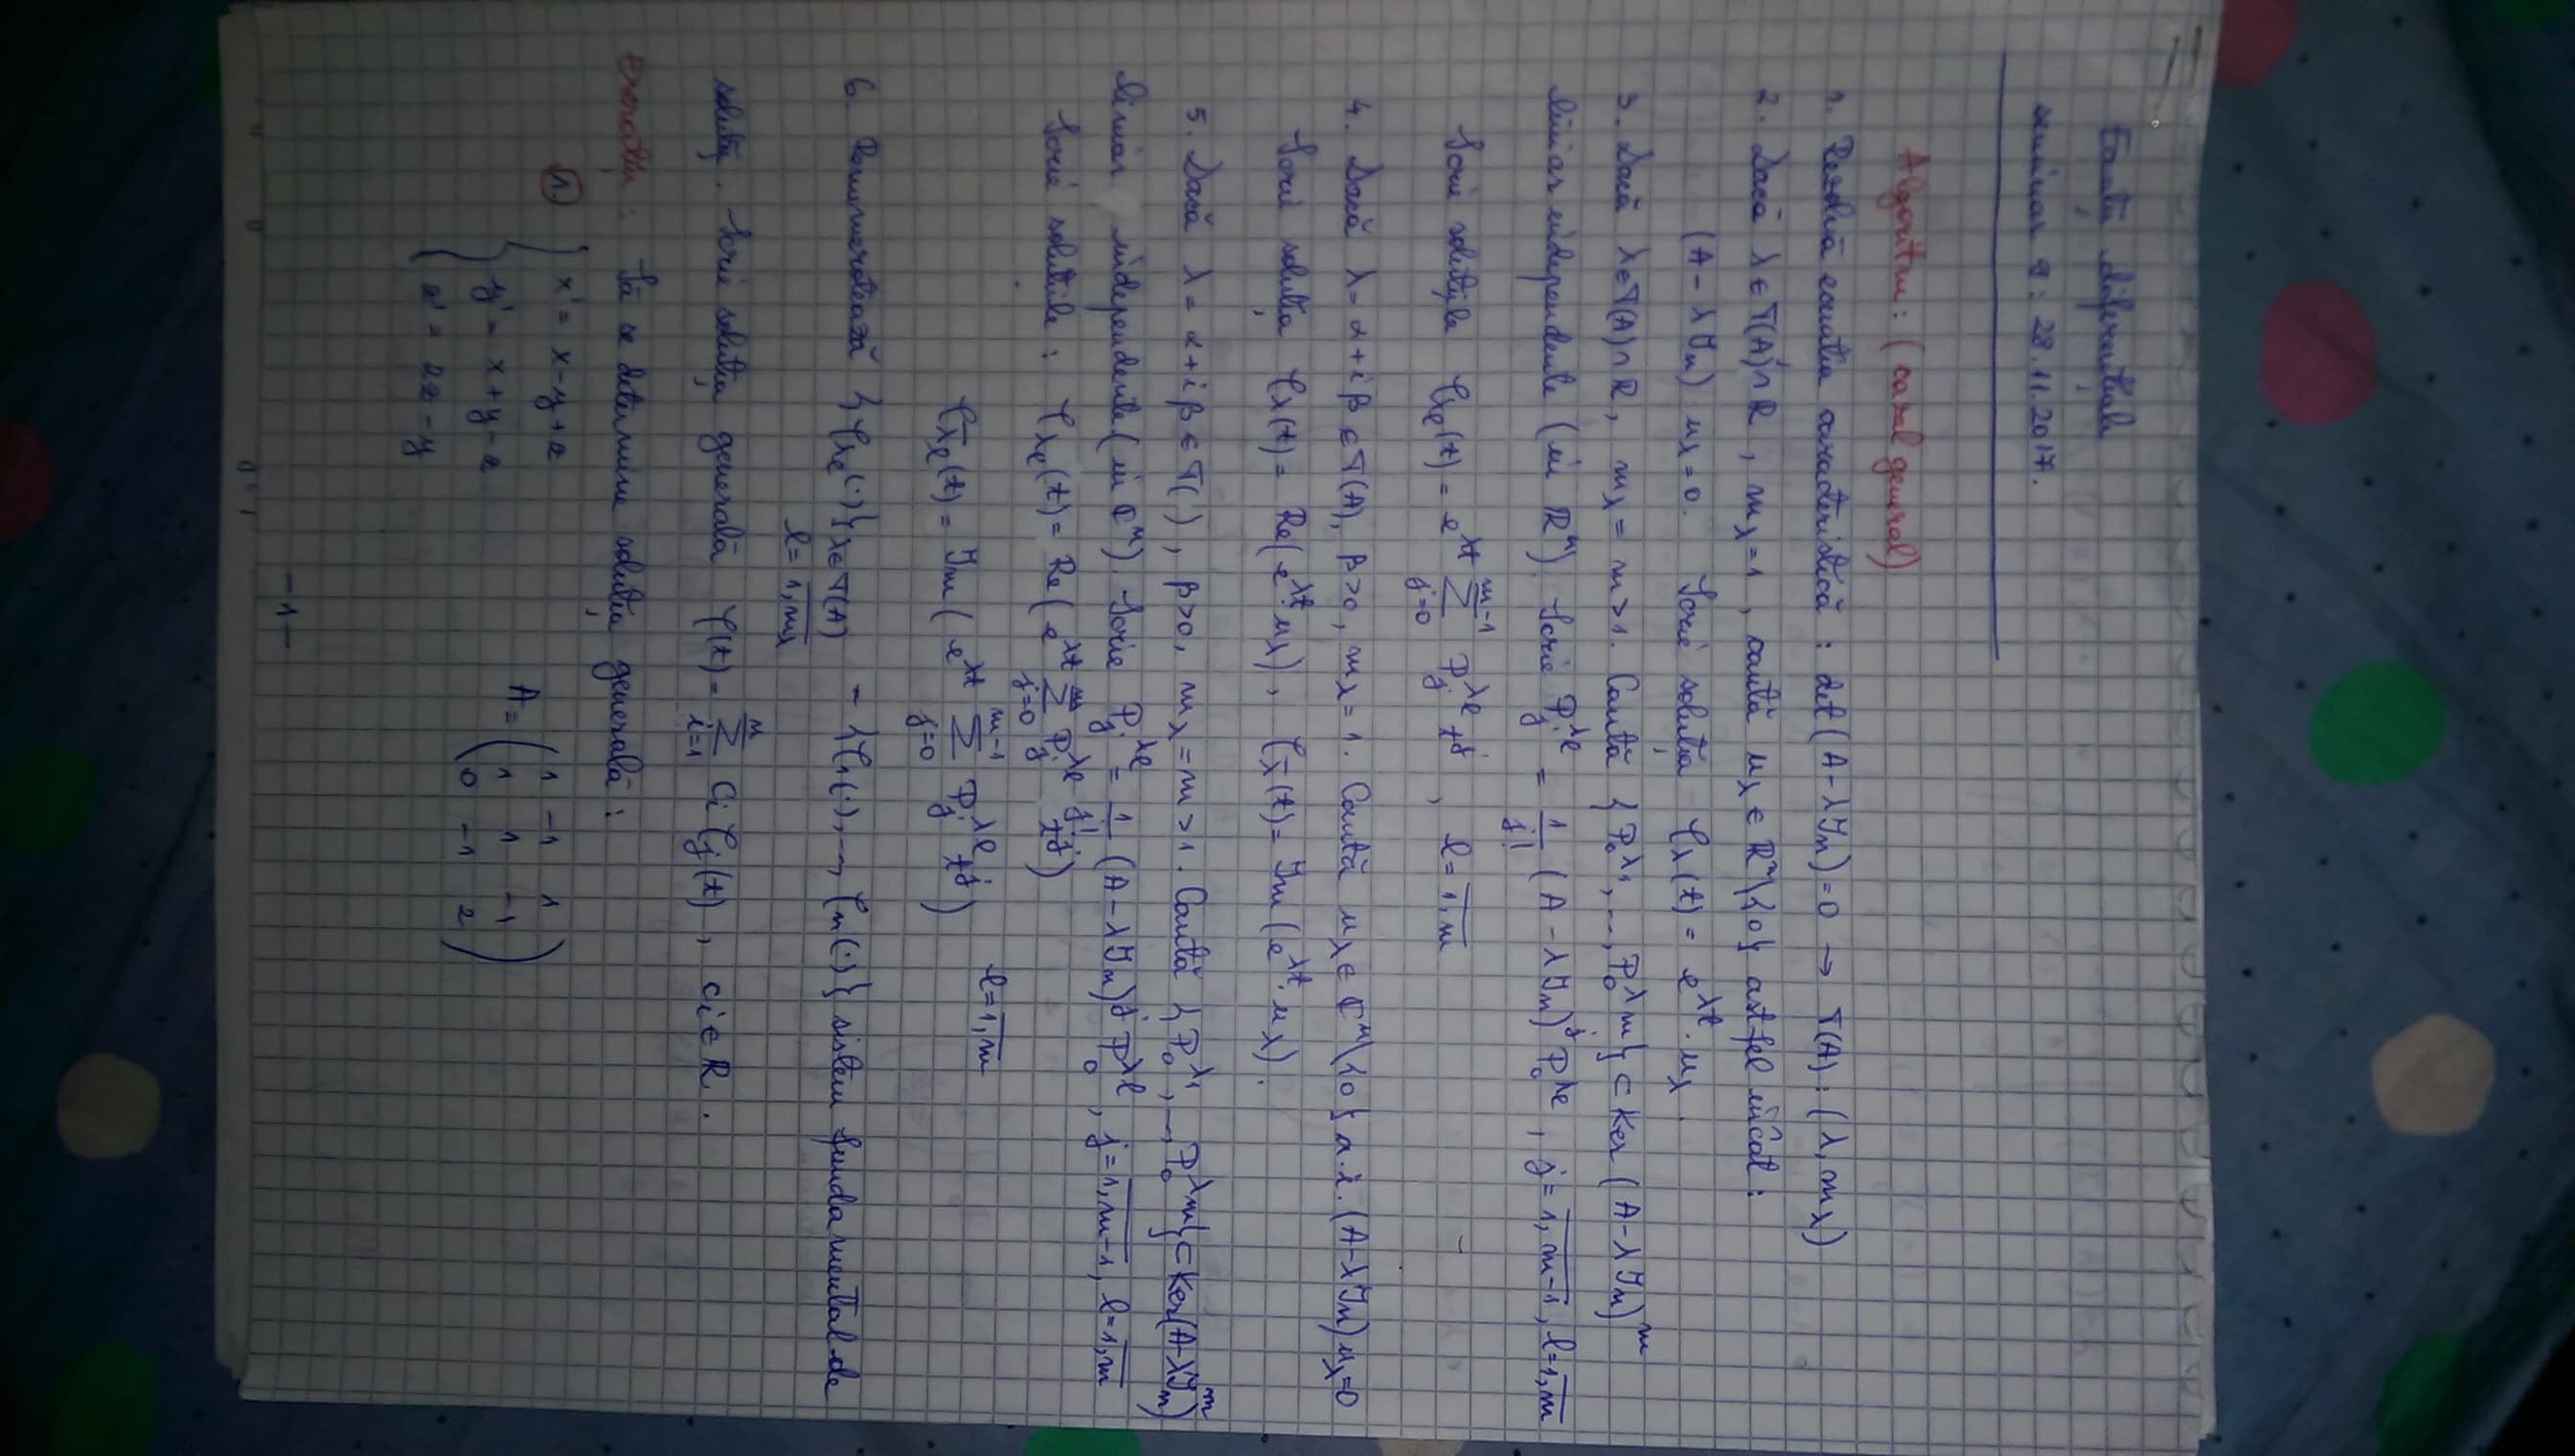 Ecuații diferențiale
seminar 8: 28.11.2017.
Algoritm: (cazul general)
1. Rezolvă ecuația caracteristică: det(A-λIₙ)=0 → T(A): (λ, m_λ)
2. Dacă λ∈T(A)∩ℝ, m_λ=1, caută u_λ∈ℝⁿ\{0} astfel încât:
(A-λIₙ) u_λ=0. Scrie soluția φ_λ(t) = e^{λt}·u_λ.
3. Dacă λ∈T(A)∩ℝ, m_λ = m>1. Caută {P₀^{λ1}, ..., P₀^{λm}} ⊂ Ker (A-λIₙ)^m
liniar independente (în ℝⁿ). Scrie P_j^{λl} = 1/j! (A-λIₙ)^j P₀^{λl}, j= \overline{1, m-1}, l=\overline{1,m}
Scrie soluțiile φ_{λl}(t) = e^{λt} ∑_{j=0}^{m-1} P_j^{λl} t^j, l=\overline{1,m}
4. Dacă λ=α+iβ∈T(A), β>0, m_λ=1. Caută u_λ∈ℂⁿ\{0} a.î. (A-λIₙ)u_λ=0
Scrie soluția φ_λ(t) = Re(e^{λt}·u_λ), φ_{\overline{λ}}(t)= Im(e^{λt}·u_λ).
5. Dacă λ=α+iβ∈T( ), β>0, m_λ=m>1. Caută {P₀^{λ1}, ..., P₀^{λm}}⊂Ker(A-λIₙ)^m
liniar independente (în ℂⁿ). Scrie P_j^{λl} = 1/j! (A-λIₙ)^j P₀^{λl}, j=\overline{1,m-1}, l=\overline{1,m}
Scrie soluțiile: φ_{λl}(t) = Re(e^{λt} ∑_{j=0}^{m} P_j^{λl} t^j)
φ_{\overline{λ}l}(t) = Im(e^{λt} ∑_{j=0}^{m-1} P_j^{λl} t^j) l=\overline{1,m}
6. Renumerotează {φ_{λl}(·)}_{λ∈T(A)} - {φ₁(·), ..., φₙ(·)} sistem fundamental de
l=\overline{1,m_λ}
soluții. Scrie soluția generală φ(t)= ∑_{i=1}^{n} C_i φ_j(t), c_i∈ℝ.
Exerciții: Să se determine soluția generală:
1. { x' = x-y+z A= ( 1 -1 1
y' = x+y-z 1 1 -1
z' = 2z-y 0 -1 2 )
-1-